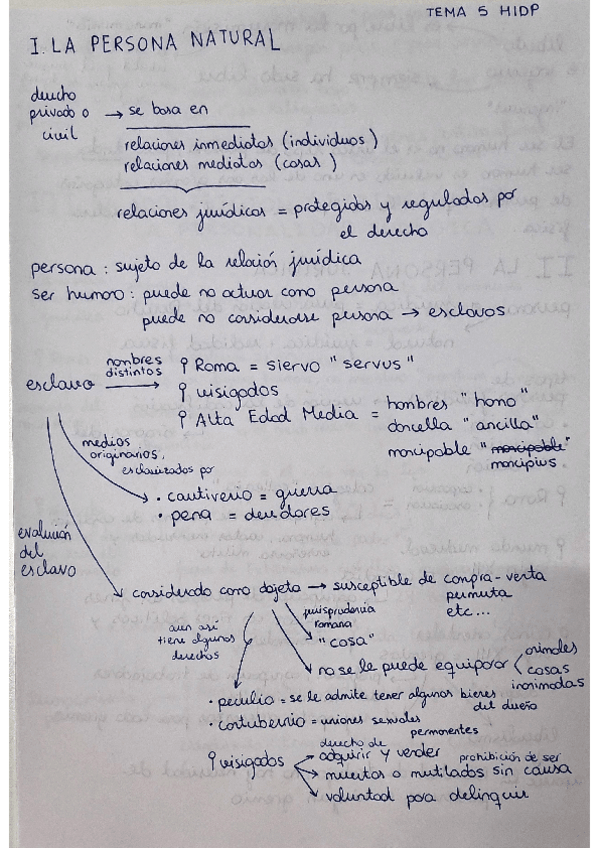 TEMA 5 HIDP
I. LA PERSONA NATURAL
derecho
privado o → se basa en
civil
relaciones inmediatas (individuos)
relaciones mediatas (cosas)
relaciones jurídicas = protegidas y reguladas por
el derecho
persona : sujeto de la relación jurídica
ser humano : puede no actuar como persona
puede no considerarse persona → esclavos
esclavo → nombres
distintos
Roma = siervo "servus"
visigodos
Alta Edad Media = hombres "homo"
doncella "ancilla"
mancipable "mancipable"
mancipius
medios
originarios,
esclavizados por
• cautiverio = guerra
• pena = deudores
evolución
del
esclavo
considerado como objeto → susceptible de compra-venta
permuta
etc...
jurisprudencia
romana
"cosa"
aun así
tiene algunos
derechos
no se le puede equiparar
animales
cosas
inanimadas
• peculio = se le admite tener algunos bienes
del dueño
• contubernio = uniones sexuales
permanentes
visigodos
derecho de
adquirir y vender
prohibición de ser
muertos o mutilados sin causa
voluntad para delinquir